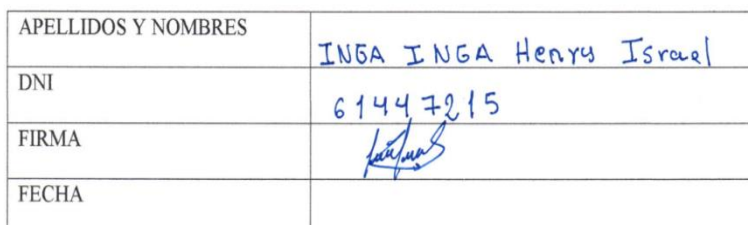 APELLIDOS Y NOMBRES
INGA INGA Henry Israel
DNI
61447215
FIRMA
FECHA